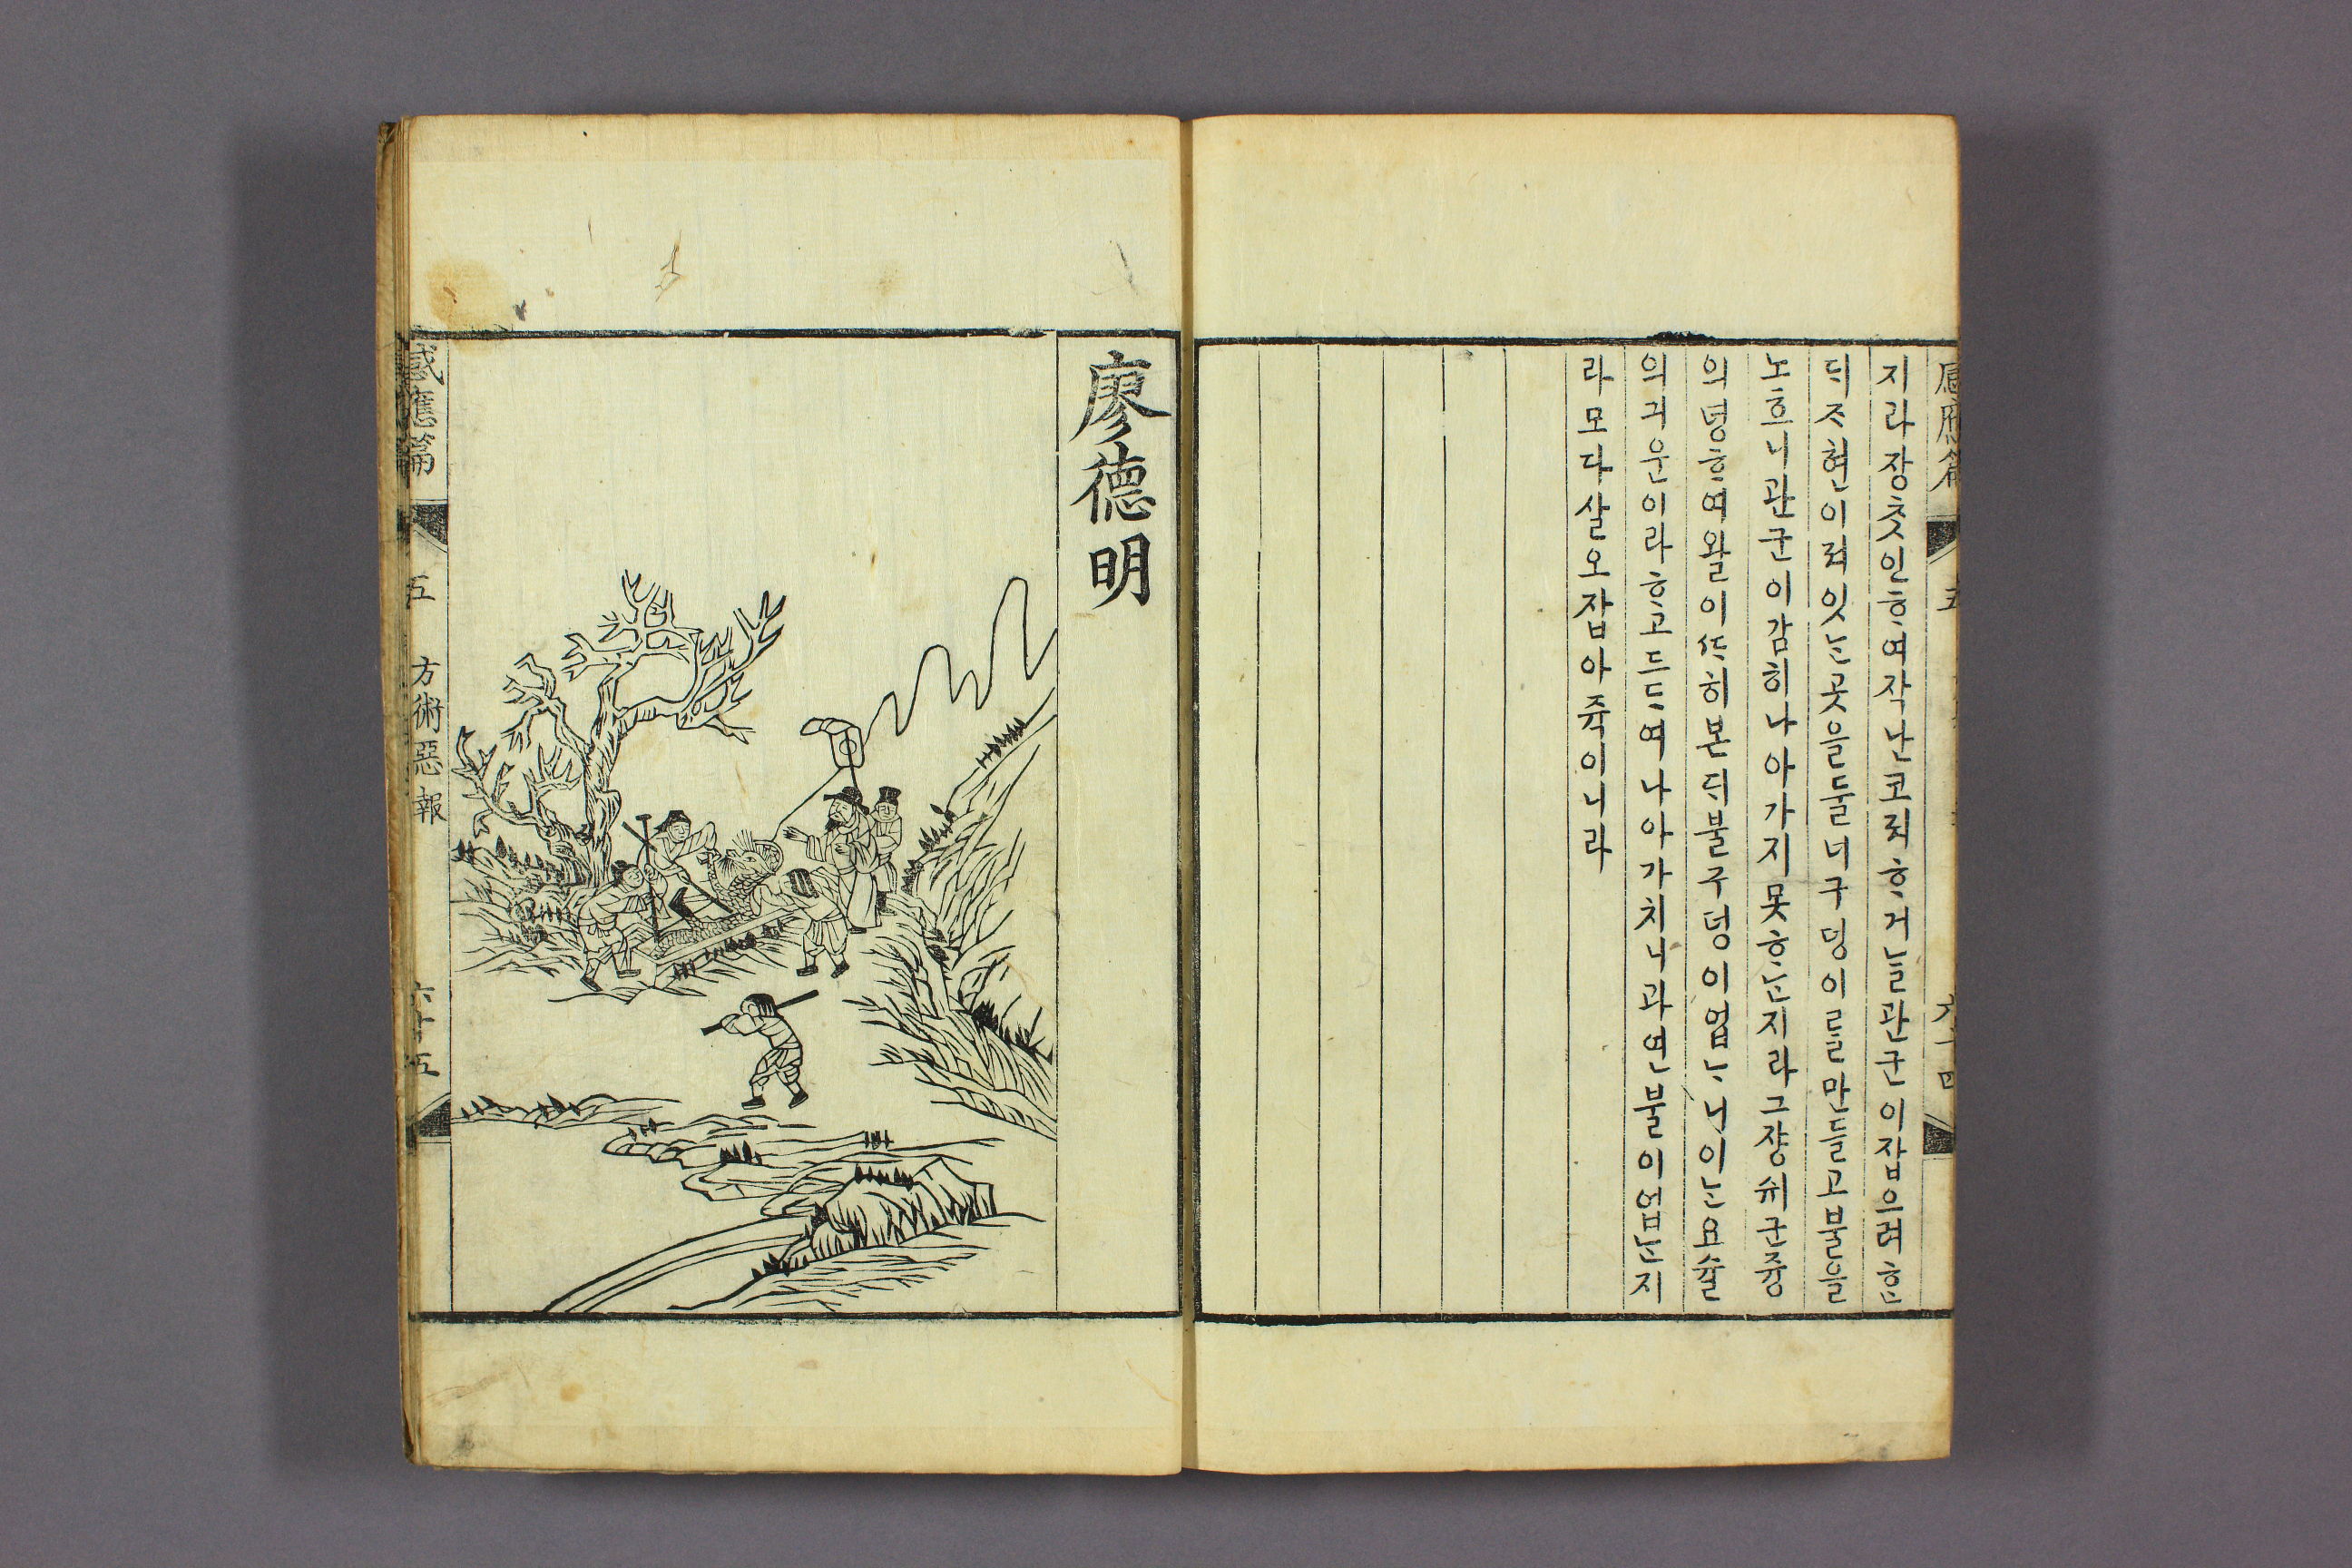 지라장ᄎᆞᆺ인ᄒᆞ여작난코져ᄒᆞ거늘관군이잡으려ᄒᆞᆫ
ᄃᆡᄌᆞ현이져잇ᄂᆞᆫ곳을둘너구덩이를만들고불을
노흐니관군이감히나아가지못ᄒᆞᄂᆞᆫ지라그쟝쉬군즁
의녕ᄒᆞ여왈이ᄯᅡ히본ᄃᆡ불구덩이업ᄂᆞ니이ᄂᆞᆫ요슐
의긔운이라ᄒᆞ고드ᄃᆞ여나아가치니과연불이업ᄂᆞᆫ지
라모다살오잡아쥭이니라
廖德明
感應篇 五 方術惡報 六十五